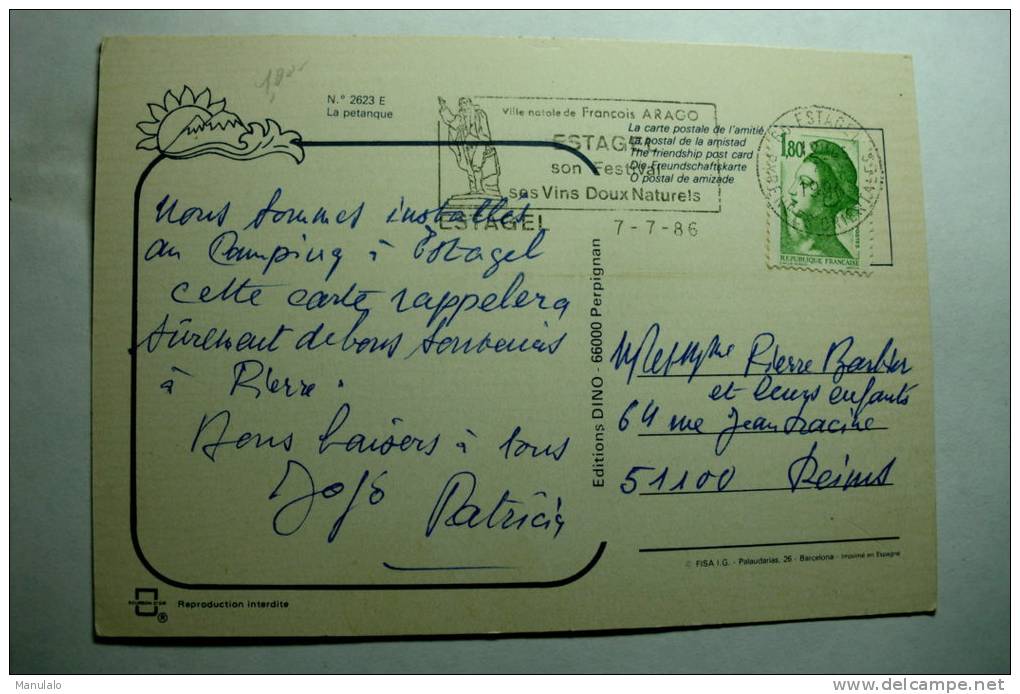 N.° 2623 E
La petanque
Ville natale de François ARAGO
ESTAGEL
son Festival
ses Vins Doux Naturels
ESTAGEL
7-7-86
La carte postale de l'amitié
La postal de la amistad
The friendship post card
Die Freundschaftskarte
O postal de amizade
ESTAGEL
1,80
REPUBLIQUE FRANÇAISE
Nous sommes installés
au Camping à Estagel
cette carte rappelera
sûrement de bons souvenirs
à Pierre.
Bons baisers à tous
Jojo
Patricia
Editions DINO - 66000 Perpignan
Mr et Mme Pierre Barbier
et leurs enfants
64 rue Jean Racine
51100 Reims
© FISA I.G. - Palaudarias, 26 - Barcelona - Imprimé en Espagne
Reproduction interdite
®
Manulalo
www.delcampe.net